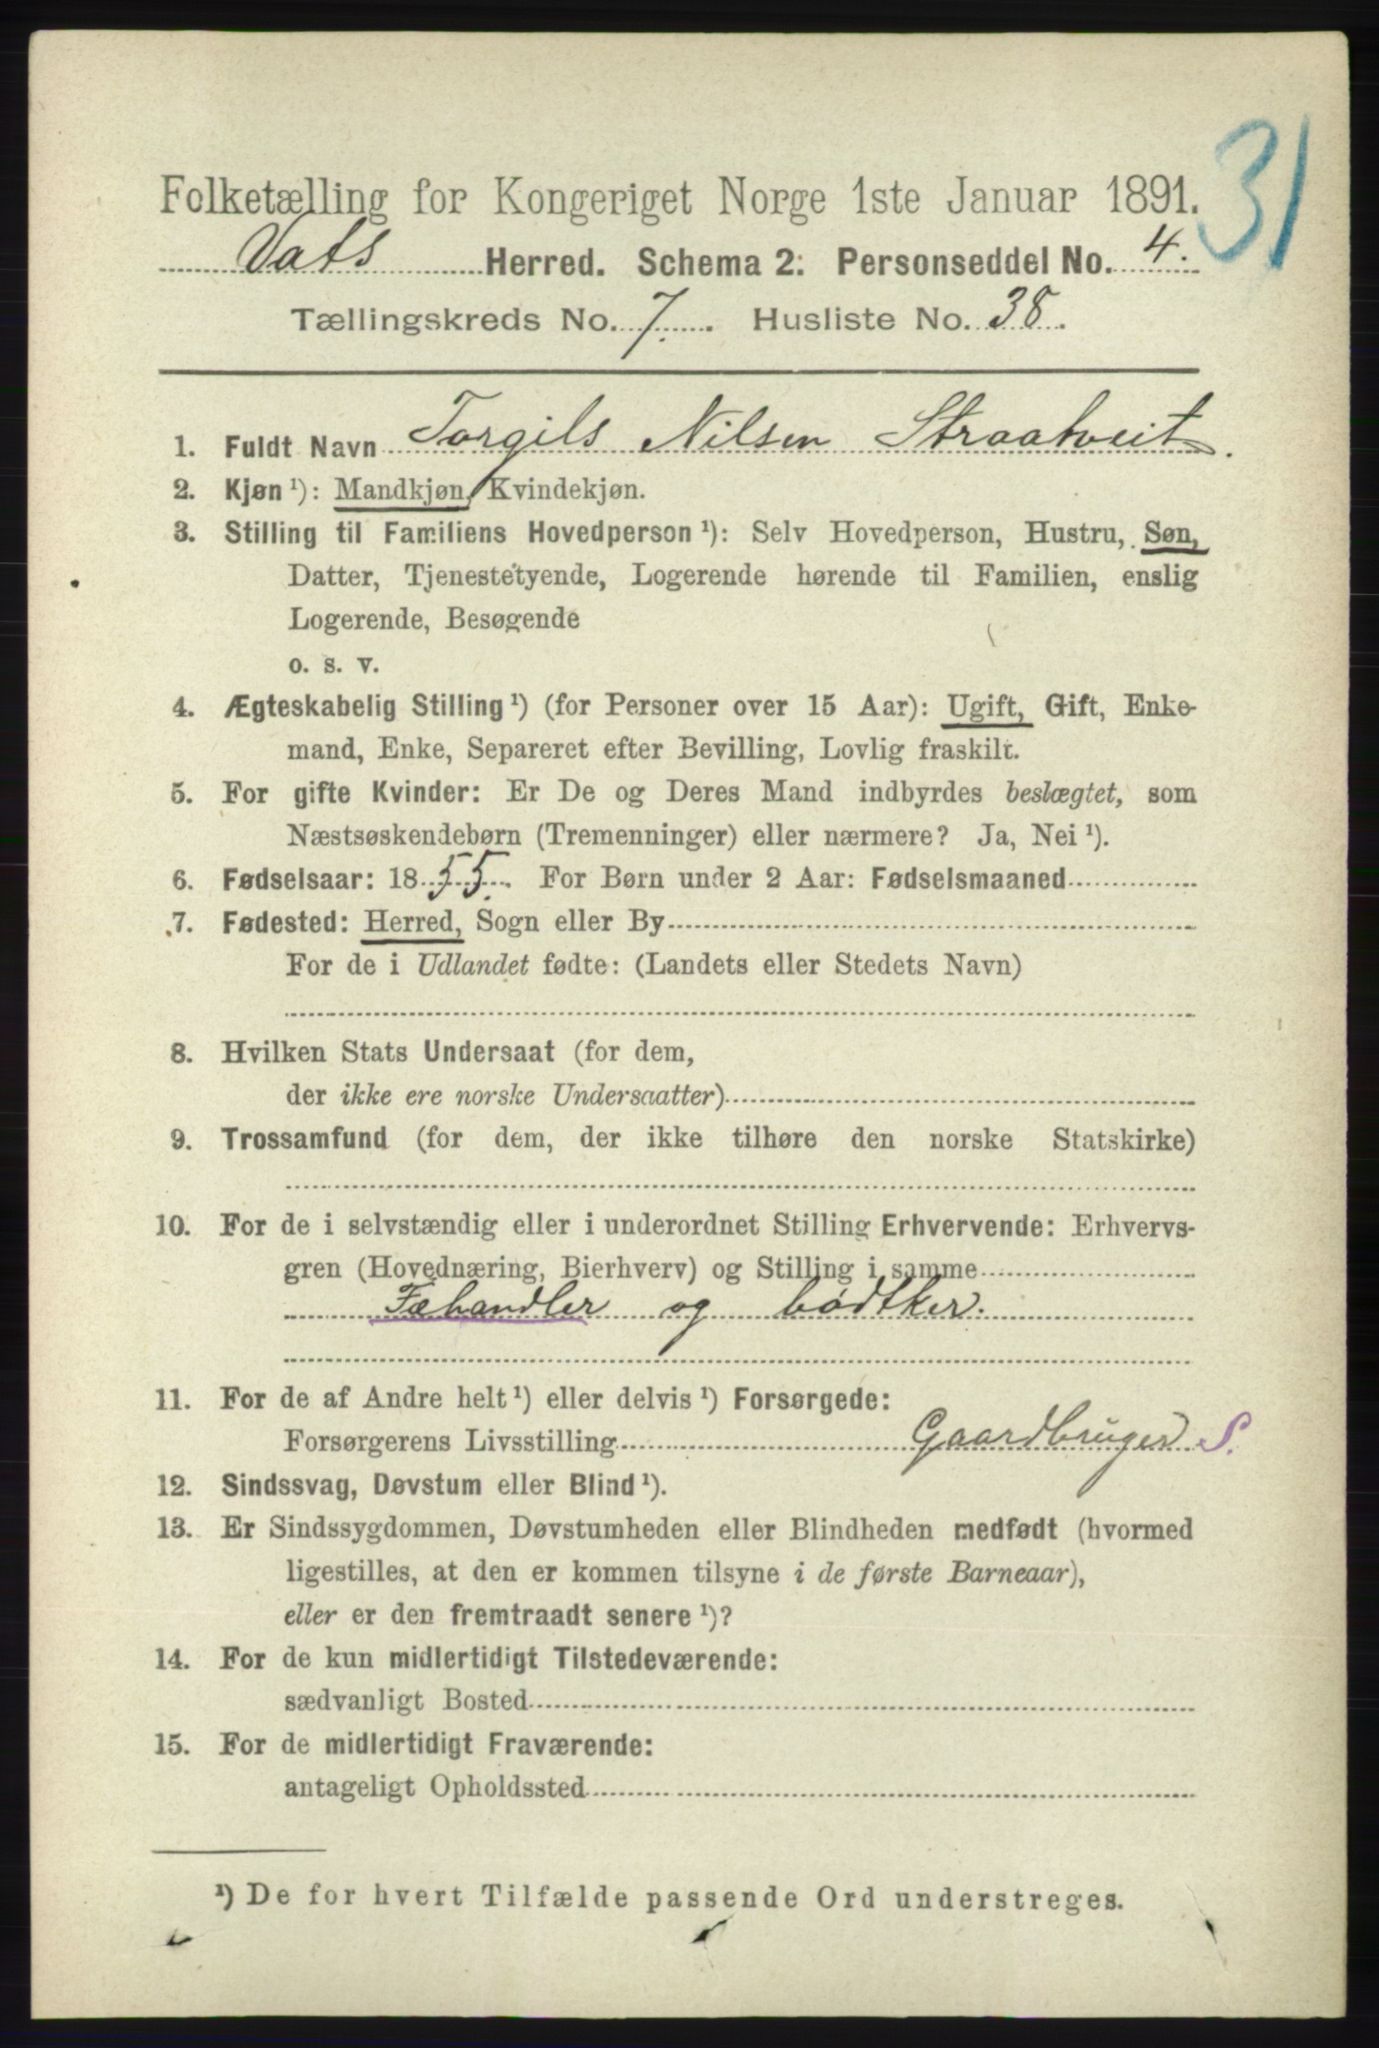 31
Folketælling for Kongeriget Norge 1ste Januar 1891.
Vats Herred. Schema 2. Personseddel No. 4.
Tællingskreds No. 7. Husliste No. 38.
1. Fuldt Navn Torgils Nilsen Straatveit.
2. Kjøn ¹): Mandkjøn, Kvindekjøn.
3. Stilling til Familiens Hovedperson ¹): Selv Hovedperson, Hustru, Søn,
Datter, Tjenestetyende, Logerende hørende til Familien, enslig
Logerende, Besøgende
o. s. v.
4. Ægteskabelig Stilling ¹) (for Personer over 15 Aar): Ugift, Gift, Enke-
mand, Enke, Separeret efter Bevilling, Lovlig fraskilt.
5. For gifte Kvinder: Er De og Deres Mand indbyrdes beslægtet, som
Næstsøskendebørn (Tremenninger) eller nærmere? Ja, Nei ¹).
6. Fødselsaar: 1855. For Børn under 2 Aar: Fødselsmaaned
7. Fødested: Herred, Sogn eller By
For de i Udlandet fødte: (Landets eller Stedets Navn)
8. Hvilken Stats Undersaat (for dem,
der ikke ere norske Undersaatter)
9. Trossamfund (for dem, der ikke tilhøre den norske Statskirke)
10. For de i selvstændig eller i underordnet Stilling Erhvervende: Erhvervs-
gren (Hovednæring, Bierhverv) og Stilling i samme
Fæhandler og bødtker.
11. For de af Andre helt ¹) eller delvis ¹) Forsørgede:
Forsørgerens Livsstilling Gaardbruger S.
12. Sindssvag, Døvstum eller Blind ¹).
13. Er Sindssygdommen, Døvstumheden eller Blindheden medfødt (hvormed
ligestilles, at den er kommen tilsyne i de første Barneaar),
eller er den fremtraadt senere ¹)?
14. For de kun midlertidigt Tilstedeværende:
sædvanligt Bosted
15. For de midlertidigt Fraværende:
antageligt Opholdssted
¹) De for hvert Tilfælde passende Ord understreges.